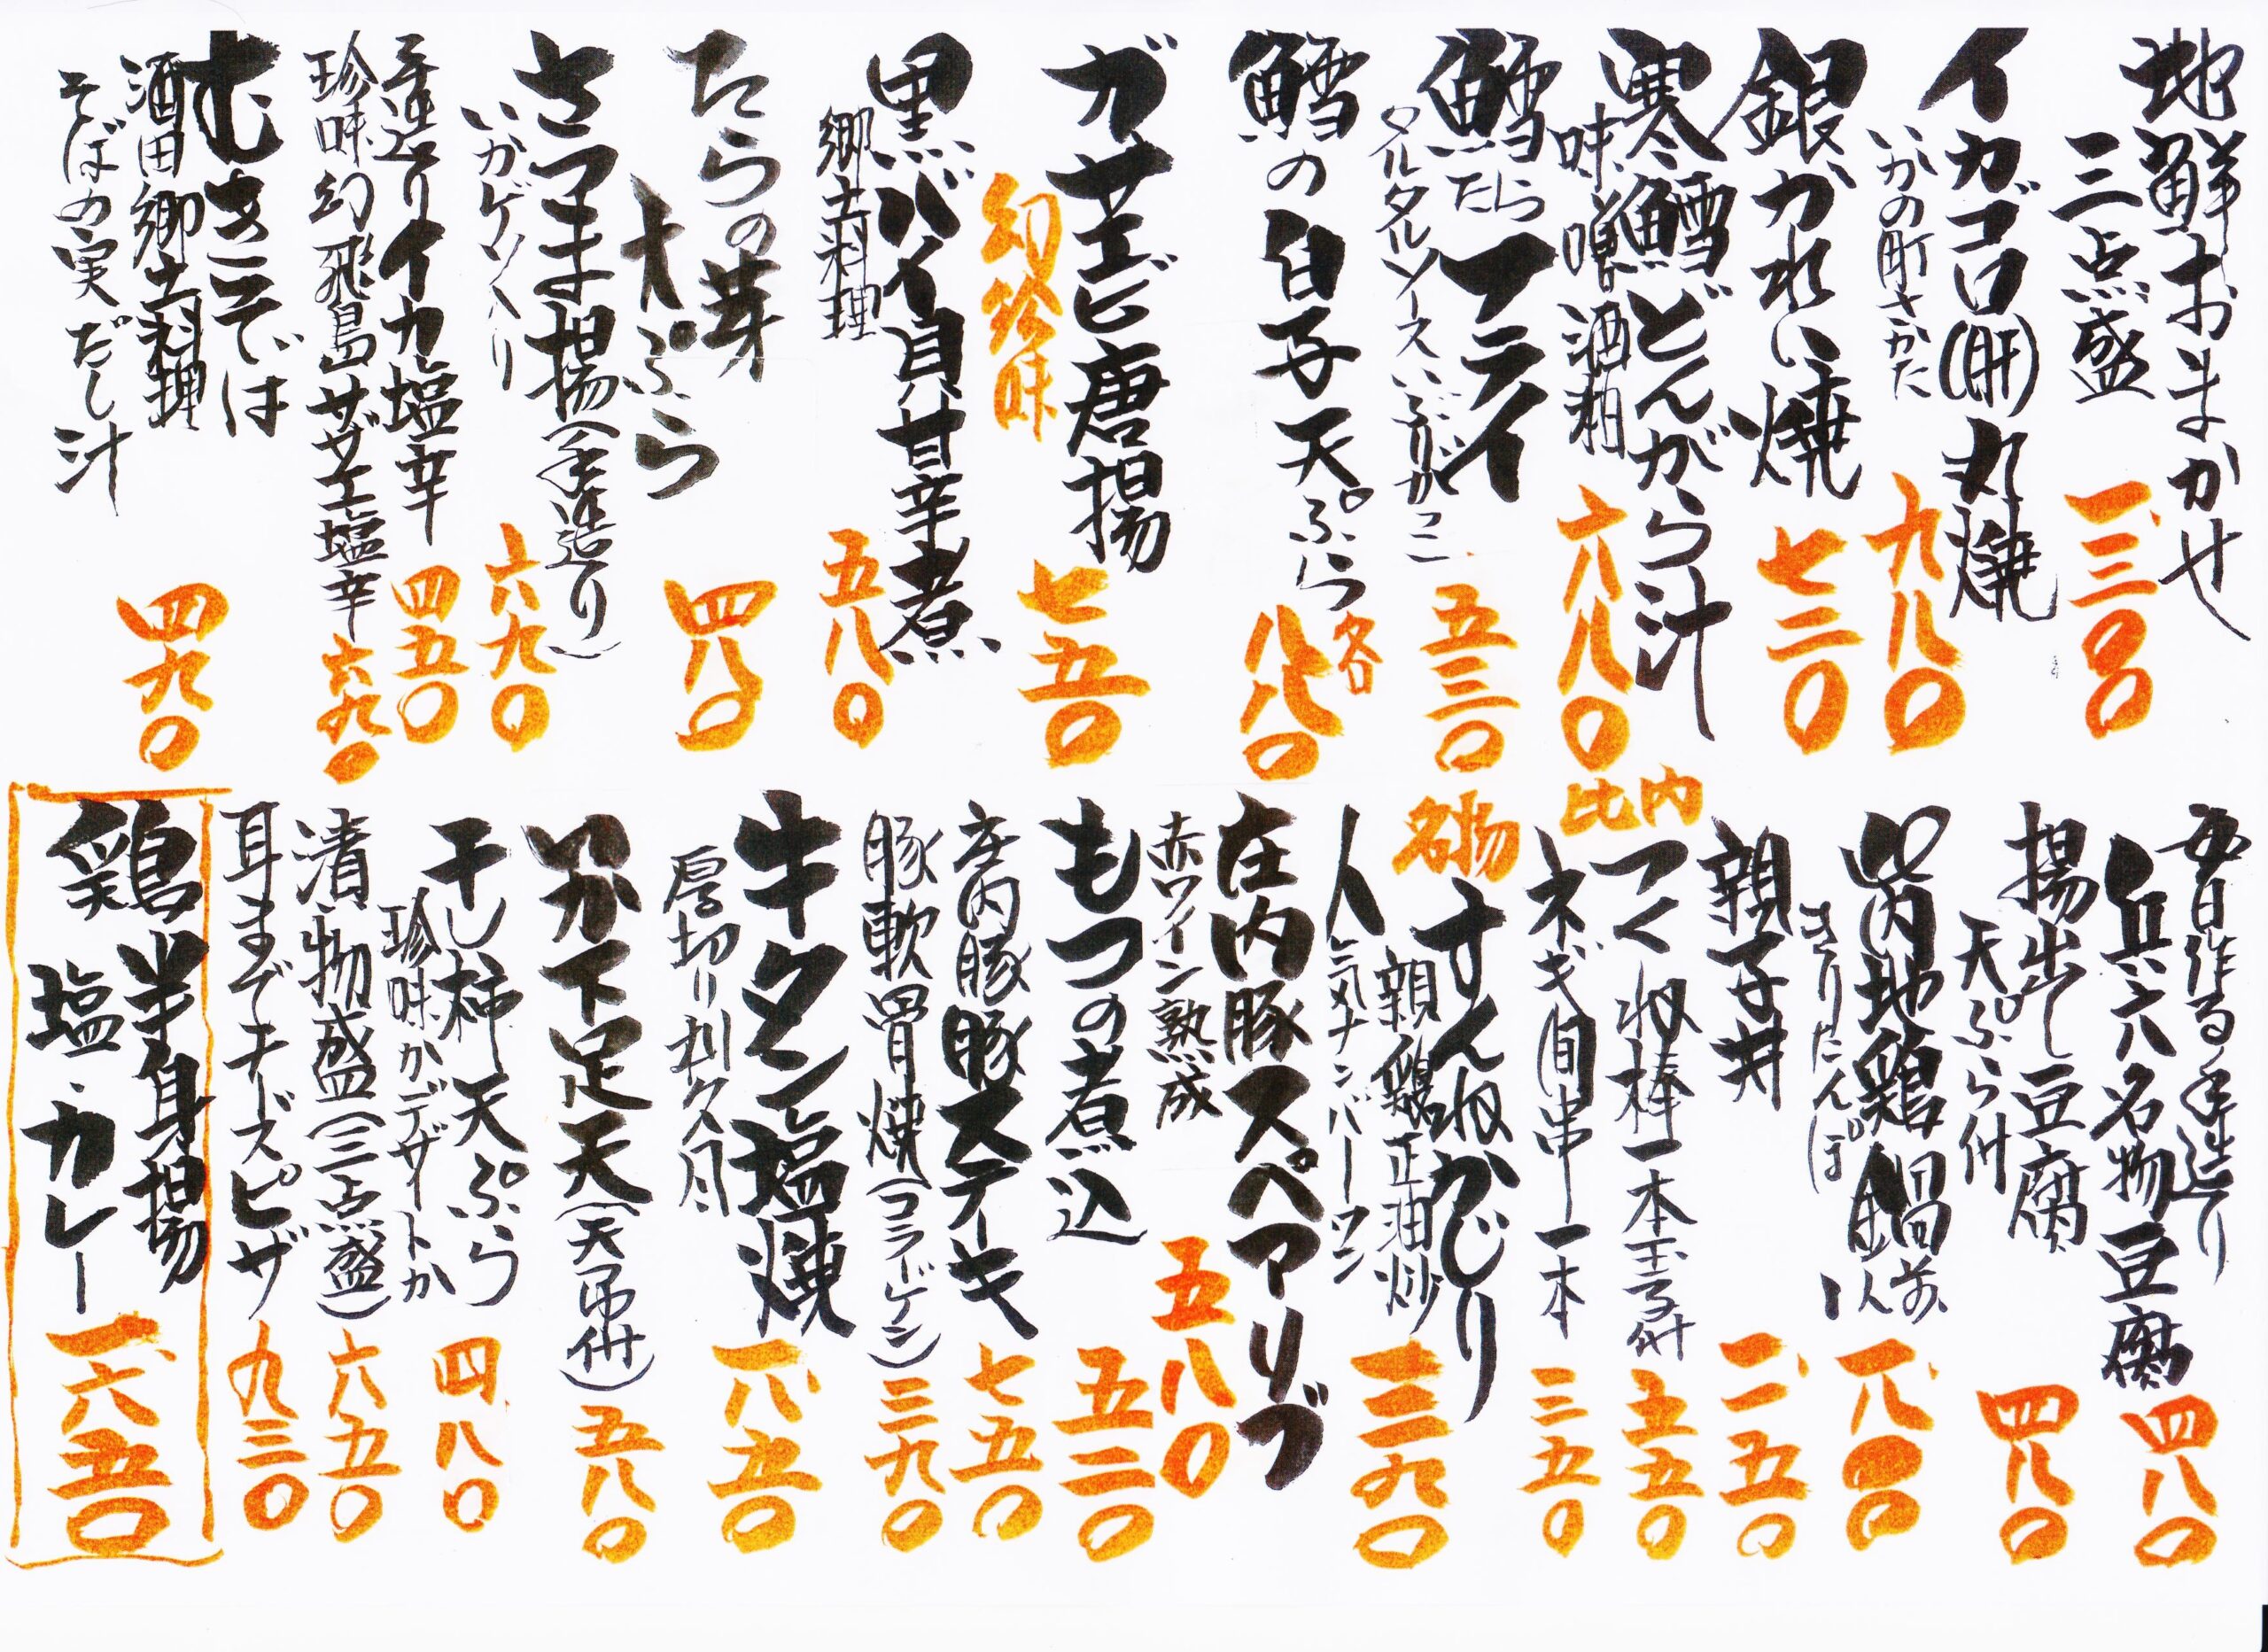 地鮮おまかせ
三点盛
一、三〇〇
イカゴロ(肝)丸焼
いかの町さかた
九八〇
銀がれい焼
七二〇
寒鱈どんがら汁
味噌酒粕
六八〇
鱈たらフライ
タルタルソースいぶりがっこ
五三〇
鱈の白子天ぷら
各
八八〇
ガサエビ唐揚
幻珍味
七五〇
黒バイ貝甘辛煮
郷土料理
五八〇
たらの芽
天ぷら
四八〇
さつま揚(手造り)
いかゲソ入り
六九〇
手造りイカ塩辛
四五〇
珍味幻飛島サザエ塩辛
六九〇
むきそば
酒田郷土料理
そばの実だし汁
四九〇
毎日作る手造り
兵六名物豆腐
四八〇
揚出し豆腐
天ぷら付
四八〇
比内地鶏鍋
きりたんぽ
一、八〇〇
親子丼
一、一五〇
比内
つくね棒一本玉子付
五五〇
ネギ間串一本
三五〇
名物
すんねかじり
親鶏正油炒
人気ナンバーワン
一、三九〇
庄内豚スペアリブ
赤ワイン熟成
五八〇
もつの煮込
五二〇
庄内豚豚ステーキ
七五〇
豚軟骨焼(コラーゲン)
三九〇
牛タン塩焼
厚切り
一、八五〇
いか下足天(天つゆ付)
五八〇
干し柿天ぷら
珍味かデザートか
四八〇
漬物盛(三点盛)
六五〇
耳までチーズピザ
九三〇
鶏半身揚
塩・カレー
一、六五〇